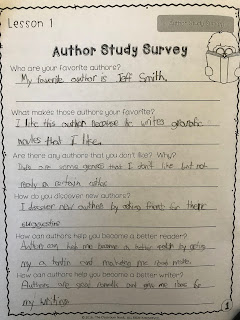 Lesson 1
Author Study Survey
Who are your favorite authors?
My favorite author is Jeff Smith
What makes those authors your favorite?
I like this author because he writes graphic
novles that I like.
Are there any authors that you don't like? Why?
are some genres that I don't like but not
really a certain
How do you discover new authors?
I discover new authors by asking friends for there
How can authors help you become a better reader?
Authors can help me become a better reader by
my and making me read more.
How can authors help you become a better writer?
Authors are good and give me ideas for
my writing.
1